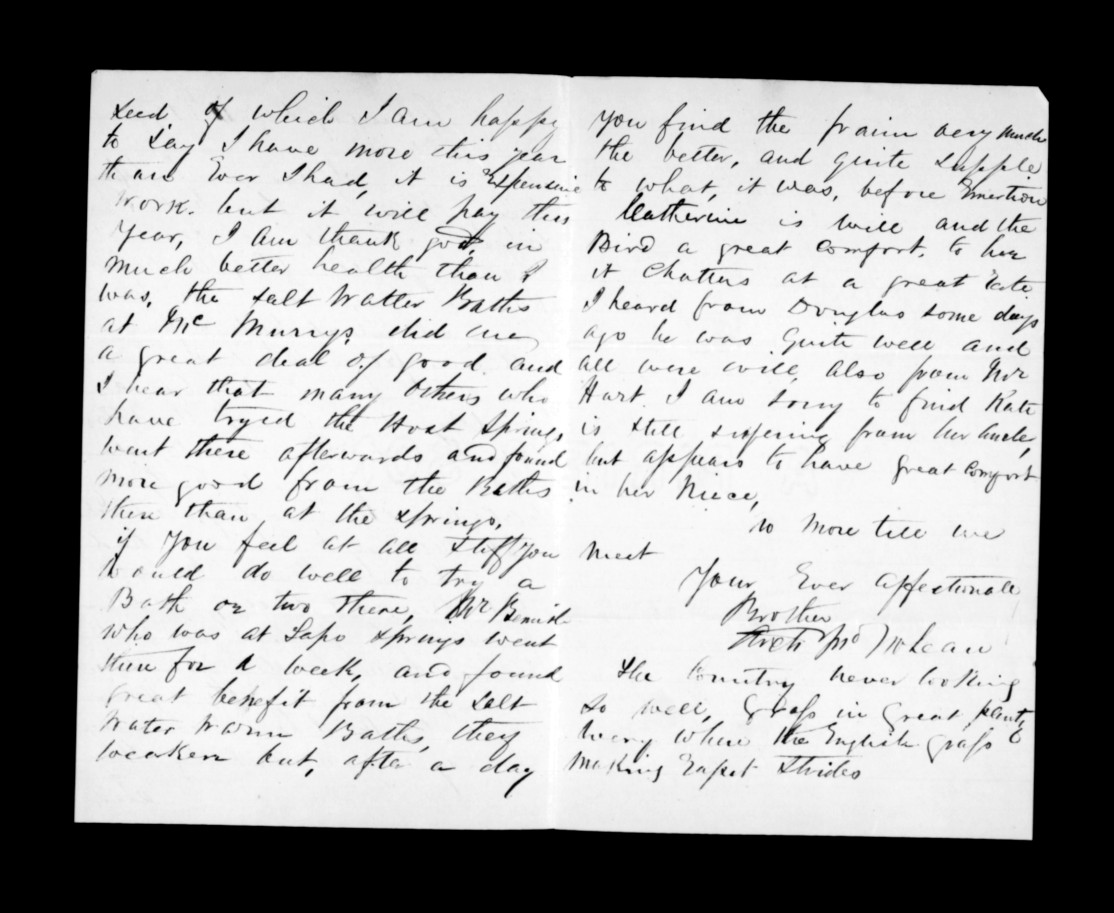 seed of which I am happy
to say I have more this year
than Ever I had, it is Expensive
work. but it will pay this
year, I am thank god, in
much better health than I
was, the salt Watter Baths
at Mc Murrys did me
a great deal of good. and
I hear that many Others who
have tryed the Hoat Springs
went there afterwards and found
more good from the Baths
there than at the springs.
if You feel at all stiff You
would do well to try a
Bath or two there, Mr
who was at springs went
there for a week, and found
great benefit from the salt
water warm Baths, they
weaken but, after a day
You find the fraim very much
the better, and quite supple
to what, it was, before Emertion
Catherine is well and the
Bird a great comfort. to her
it Chatters at a great rate
I heard from Douglas some days
ago he was quite well and
all were well, also from Mr
Hart. I am sorry to find Kate
is still suffering from her ancle,
but appears to have great comfort
in her Niece,
no more till we
meet
Your Ever affectionate
Brother
Archd Jno McLean
The Country never looking
so well, Grass in Great plenty
Every where the English grass
making strides